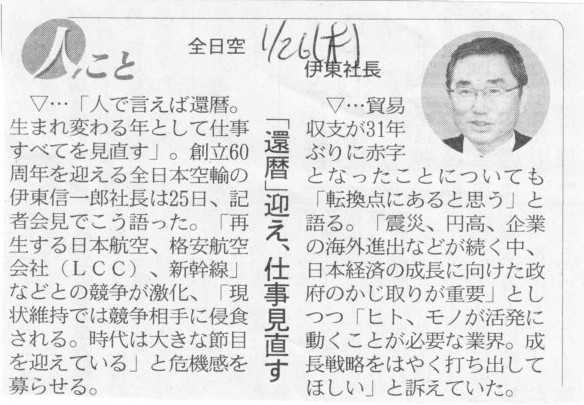 人、こと
全日空
1/26(木)
伊東社長
「還暦」迎え、仕事見直す
▽…「人で言えば還暦。
生まれ変わる年として仕事
すべてを見直す」。創立60
周年を迎える全日本空輸の
伊東信一郎社長は25日、記
者会見でこう語った。「再
生する日本航空、格安航空
会社(LCC)、新幹線」
などとの競争が激化、「現
状維持では競争相手に侵食
される。時代は大きな節目
を迎えている」と危機感を
募らせる。
▽…貿易
収支が31年
ぶりに赤字
となったことについても
「転換点にあると思う」と
語る。「震災、円高、企業
の海外進出などが続く中、
日本経済の成長に向けた政
府のかじ取りが重要」とし
つつ「ヒト、モノが活発に
動くことが必要な業界。成
長戦略をはやく打ち出して
ほしい」と訴えていた。